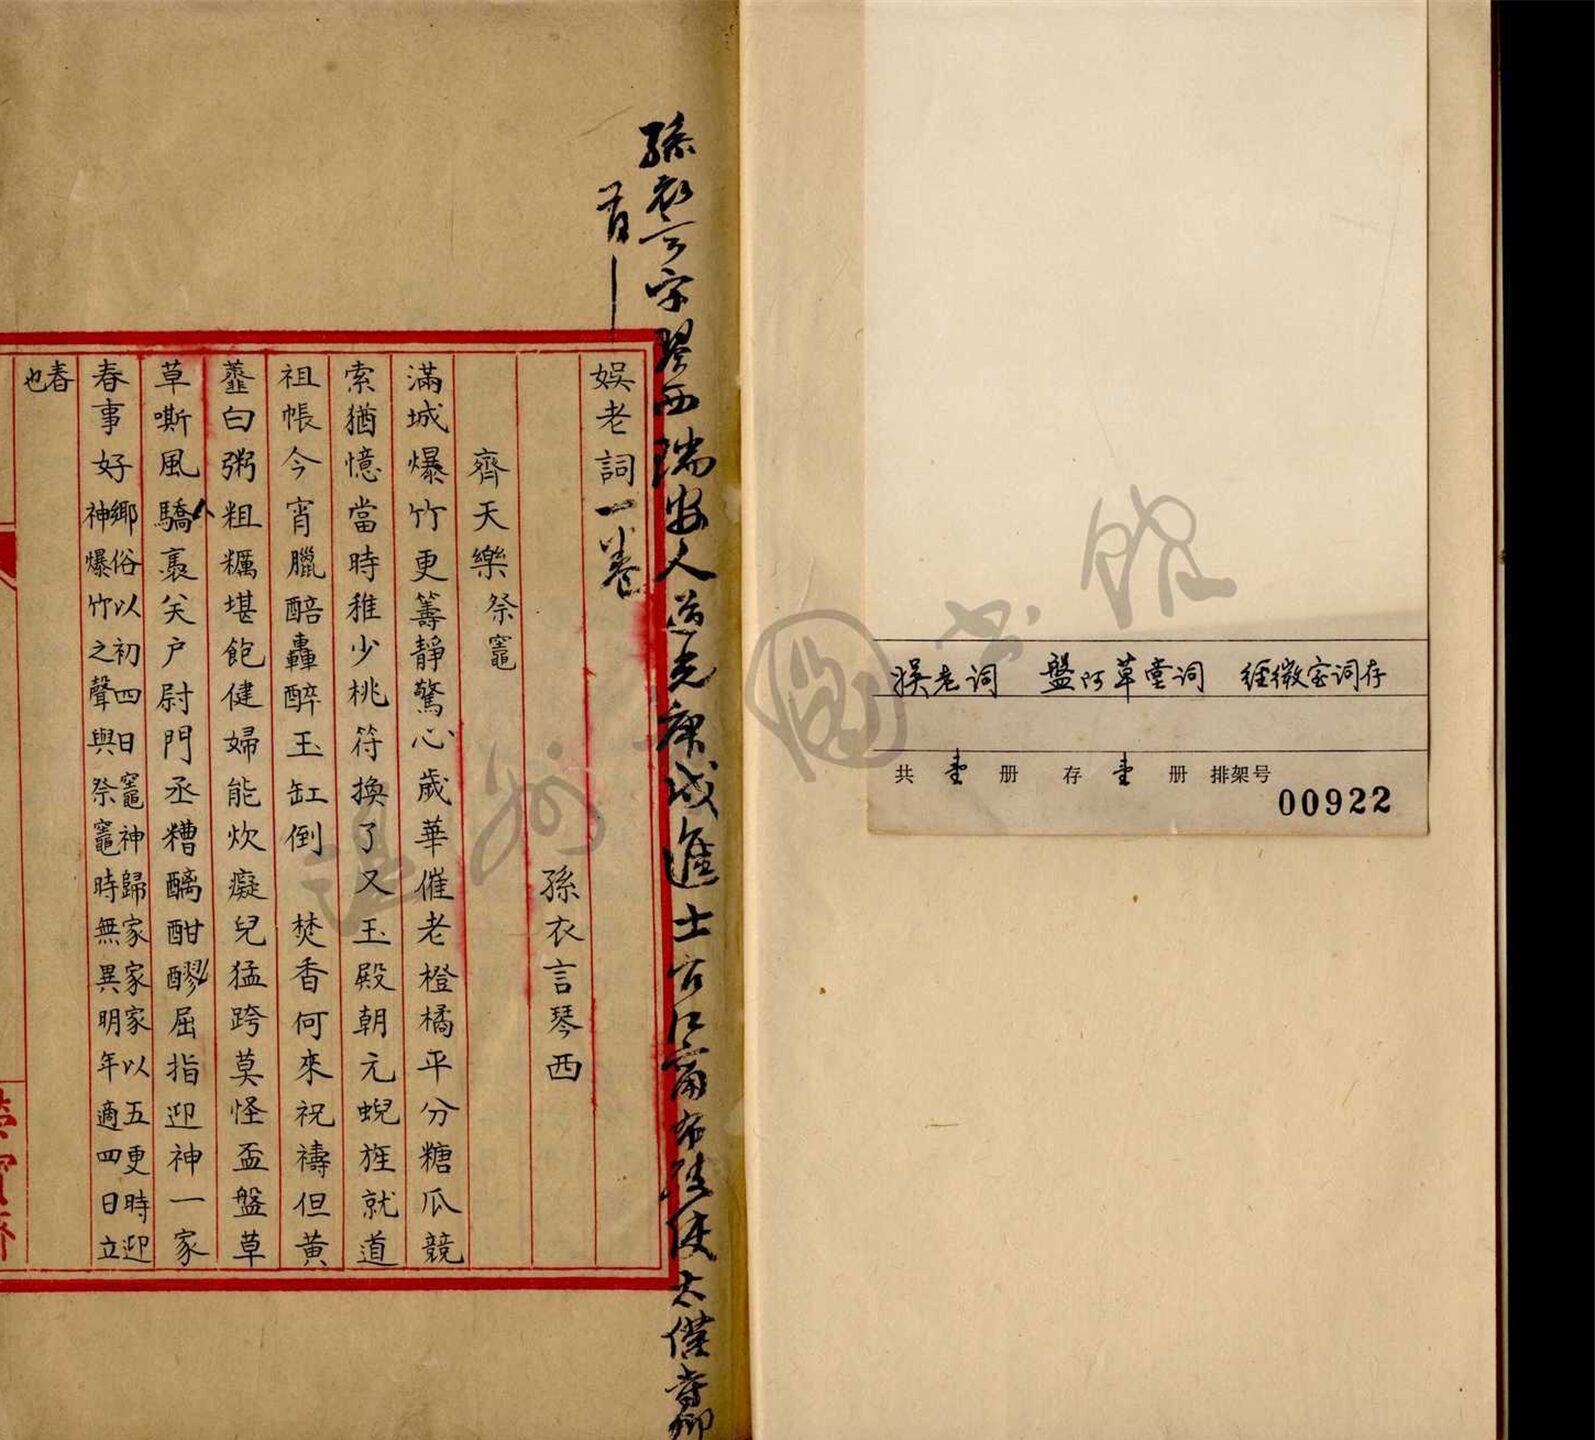 娱老词　盤阿草堂词　经微室词存
共 壹 册　存 壹 册　排架号
00922
孫衣言字琴西瑞安人道光庚戌進士官江甯布政使太僕寺卿
有
娛老詞一卷
孫衣言琴西
齊天樂 祭竈
滿城爆竹更籌靜驚心歲華催老橙橘平分糖瓜競
索猶憶當時稚少桃符換了又玉殿朝元蜺旌就道
祖帳今宵臘醅轟醉玉缸倒　焚香何來祝禱但黃
虀白粥粗糲堪飽健婦能炊癡兒猛跨莫怪盃盤草
草嘶風驕裹矣戶尉門丞糟醨酣醪屈指迎神一家
春事好 鄉俗以初四日竈神歸家家家以五更時迎
神爆竹之聲與祭竈時無異明年適四日立
春
也
榮寶齋
温州圖书館